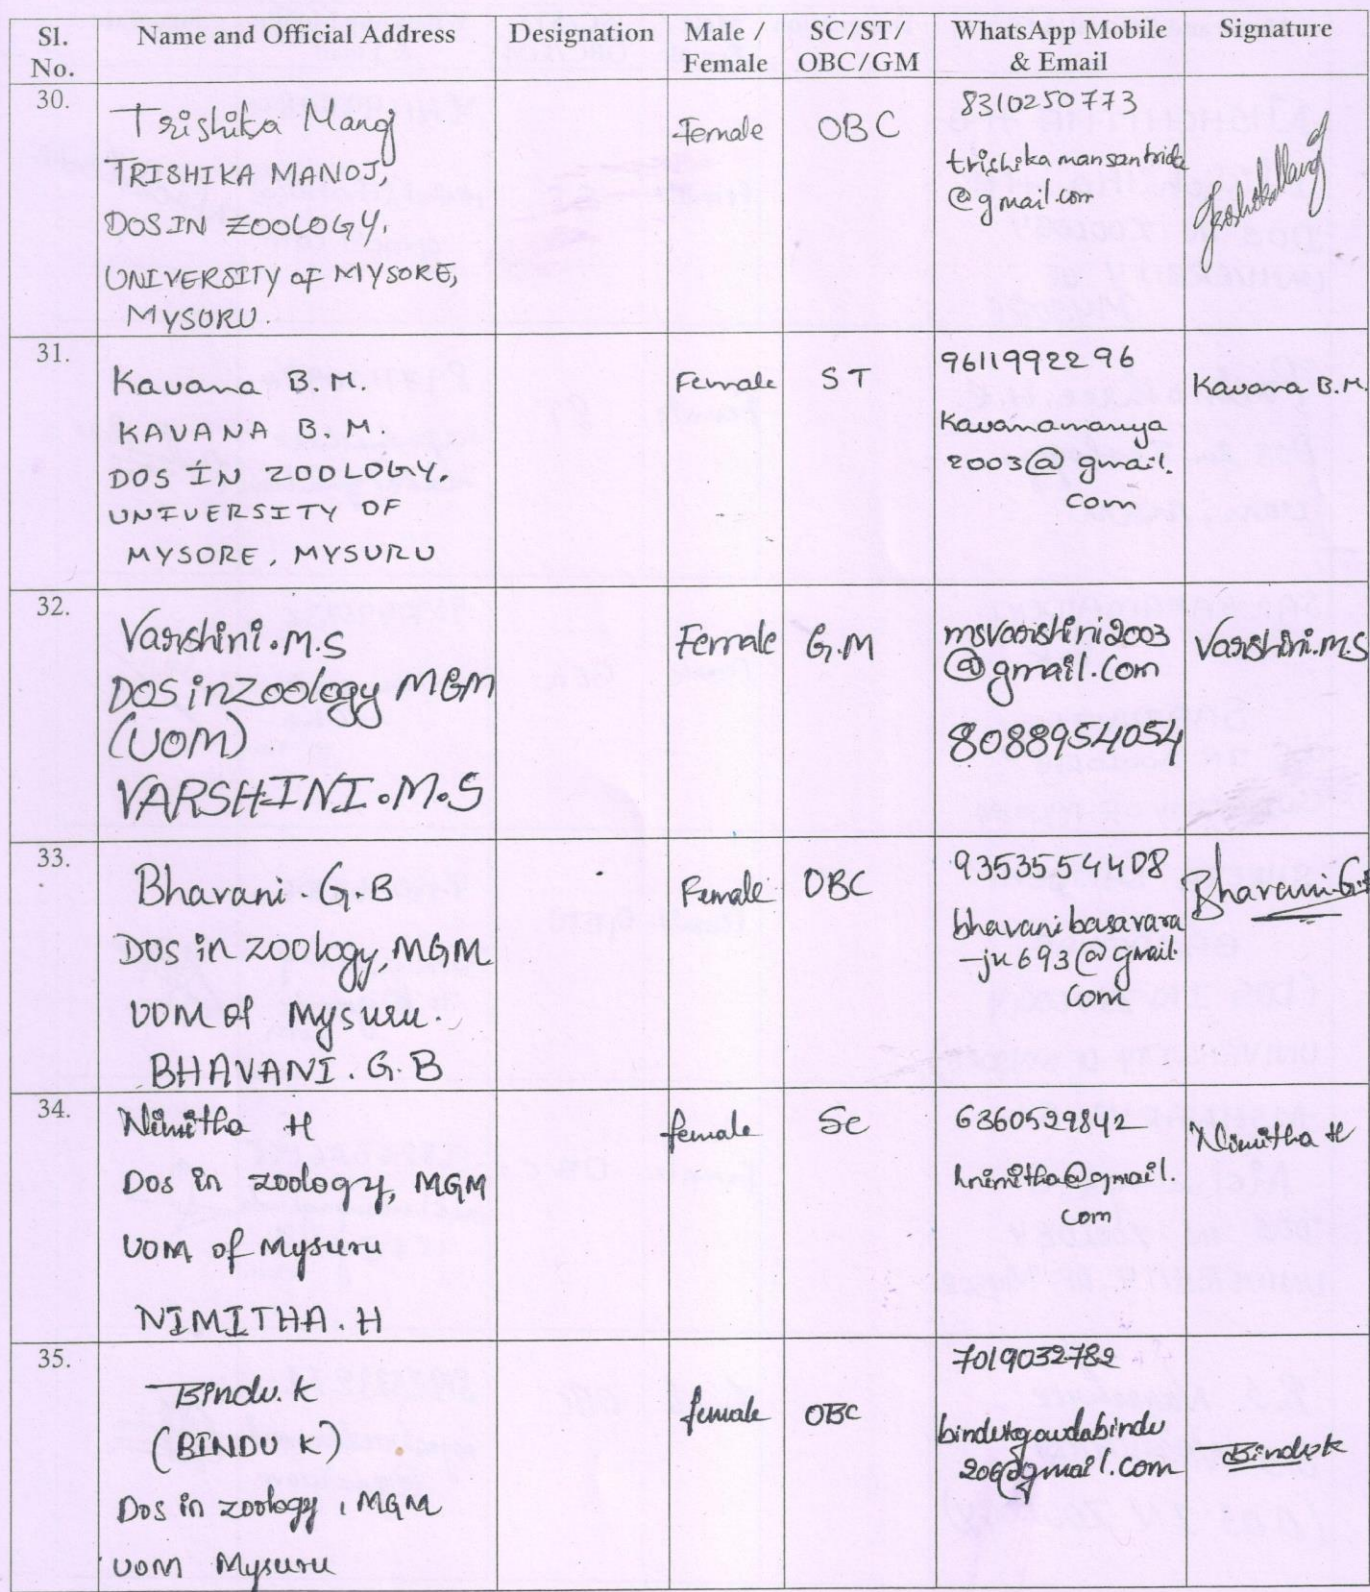 Sl. No.
Name and Official Address
Designation
Male / Female
SC/ST/ OBC/GM
WhatsApp Mobile & Email
Signature
30.
Trishika Manoj
TRISHIKA MANOJ,
DOS IN ZOOLOGY,
UNIVERSITY of MYSORE,
MYSORU.
Female
OBC
8310250773
trishika mansantride
@gmail.com
31.
Kavana B.M.
KAVANA B.M.
DOS IN ZOOLOGY,
UNIVERSITY OF
MYSORE, MYSURU
Female
ST
9611992296
Kavanamanya
2003@gmail.
com
Kavana B.M.
32.
Varshini.M.S
DOS in Zoology MGM
(UOM)
VARSHINI.M.S
Female
G.M
msvarshini2003
@gmail.com
8088954054
Varshini.M.S
33.
Bhavani.G.B
DOS in zoology, MGM
UOM of Mysuru.
BHAVANI.G.B
Female
OBC
9353554408
bhavanibasavara
-ju693@gmail.
com
Bhavani G.B
34.
Nimitha H
Dos in zoology, MGM
UOM of Mysuru
NIMITHA.H
female
Sc
6360529842
hnimitha@gmail.
com
Nimitha H
35.
Bindu.K
(BINDU K)
Dos in zoology, MGM
UOM Mysuru
female
OBC
7019032782
bindukgowdabindu
206@gmail.com
Bindu k